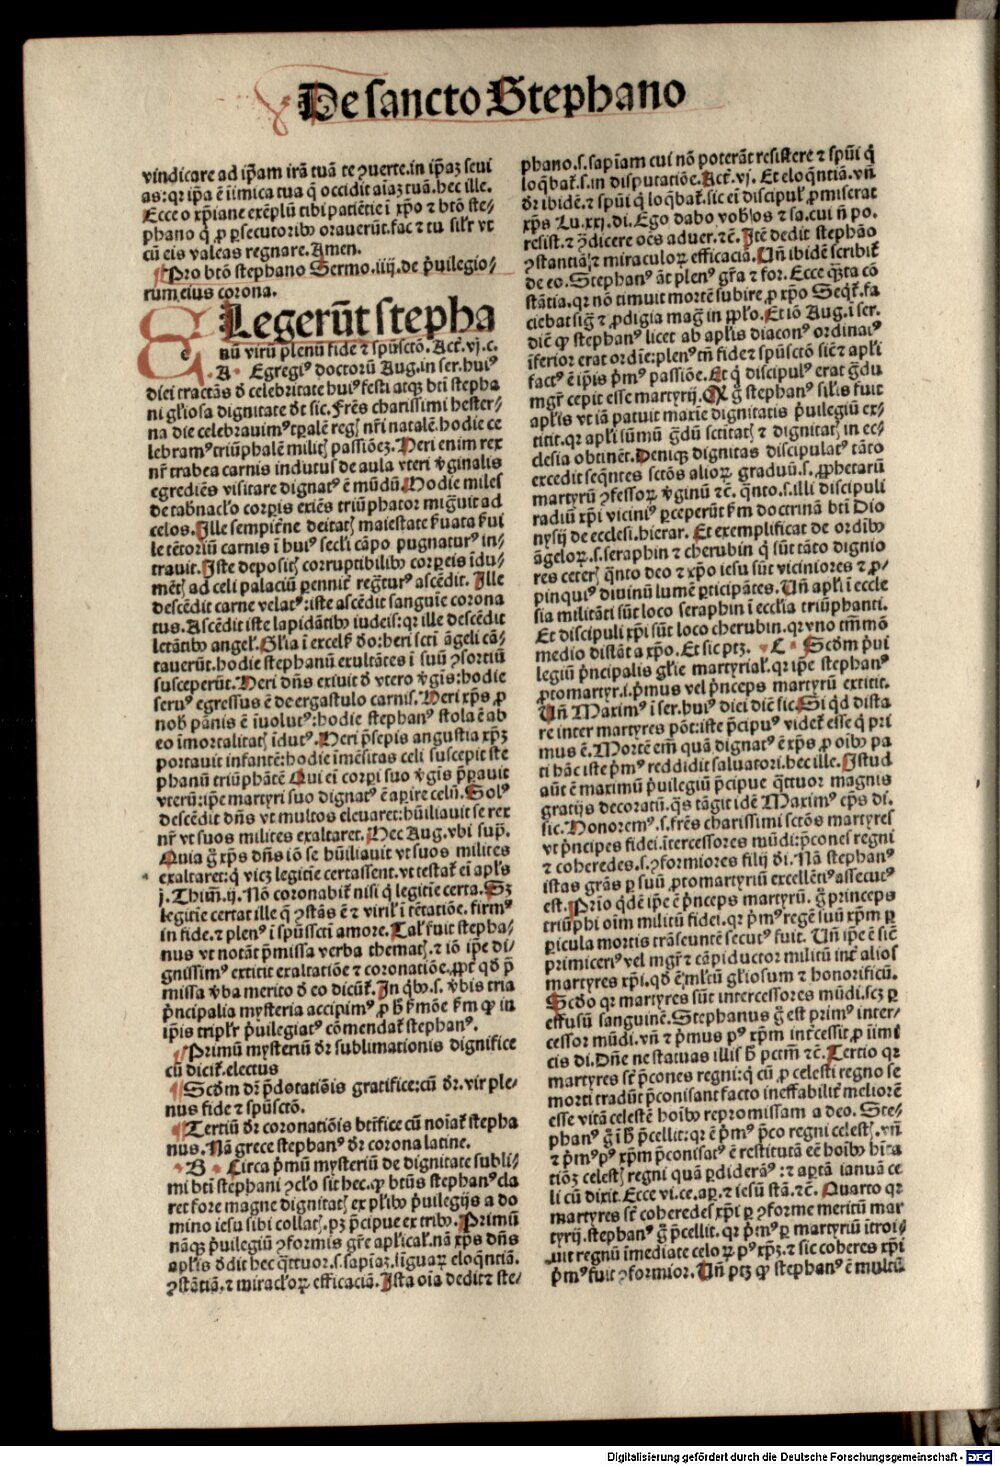 De sancto Stephano
vindicare ad ip̄am irā tuā te ꝯuerte.in ip̄aꝫ seui
as:qꝛ ip̄a ē iimica tua q̄ occidit aīaꝫ tuā.hec ille.
Ecce o xp̄iane exēplū tibi patiētie ī xp̄o ⁊ btō ste⸗
phano q̇ ꝓ ꝑsecutoribꝰ orauerūt.fac ⁊ tu silʳ vt
cū eis valeas regnare.Amen.
¶Pro btō stephano Sermo.iiij.de p̄uilegio⸗
rum eius corona.
ELegerūt stepha
nū virū plenū fide ⁊ spūsctō.Act̄.vj.c.
.A. Egregiꝰ doctorū Aug.in ser.huiꝰ
diei tractās d̄ celebritate huiꝰ festi atqꝫ bti stepha
ni glʳiosa dignitate dt̄ sic.Frēs charissimi hester⸗
na die celebrauimꝰ tꝑalē regꝭ nr̄i natalē.hodie ce
lebramꝰ triūphalē militꝭ passiōeꝫ.Heri enim rex
nr̄ trabea carnis indutus de aula vteri v̄ginalis
egrediēs visitare dignatꝰ ē mūdū.Hodie miles
de tab̄nacl̄o corꝑis exiēs triūphator migͣuit ad
celos.Ille sempit̄ne deitatꝭ maiestate ẜuata ẜui
le tētoriū carnis ī huiꝰ secl̄i cāpo pugnaturꝰ in⸗
trauit.Iste depositꝭ corruptibilibꝰ corꝑeis īdu⸗
mētꝭ ad celi palaciū ꝑennit̄ regͣturꝰ ascēdit. Ille
descēdit carne velatꝰ:iste ascēdit sanguīe corona
tus.Ascēdit iste lapidātibꝰ iudeis:qꝛ ille descēdit
letātibꝰ angeł.Gl̄ia ī excelẜ do:heri scti āgeli cā⸗
tauerūt.hodie stephanū exultātes ī suū ꝯsortiū
susceperūt.Heri dn̄s exiuit d̄ vtero v̄gīs:hodie
seruꝰ egressus ē de ergastulo carnis.Heri xp̄s ꝓ
nob̄ pānis ē īuolutꝰ:hodie stephanꝰ stola ē ab
eo īmortalitatꝭ īdutꝰ.Heri p̄sepis angustia xp̄ꝫ
portauit infantē:hodie īmēsitas celi suscepit ste
phanū triūphātē Qui ei corꝑi suo v̄gīs p̄parauit
vterū:ip̄e martyri suo dignatꝰ ē aꝑire celū.Solꝰ
descēdit dn̄s vt multos eleuaret:hūiliauit se rex
nr̄ vt suos milites exaltaret.Hec Aug.vbi sup̄.
Quia g̊ xp̄s dn̄s iō se hūiliauit vt suos milites
exaltaret:q̇ vicꝫ legitīe certassent.vt testať ei apl̄s
j.Thim̄.ij.Nō coronabiť nisi q̇ legitīe certa.Sꝫ
legitīe certat ille q̇ ꝯstās ē ⁊ virilʳ ī tētatiōe.firmꝰ
in fide.⁊ plenꝰ ī spūsscti amore.Tał fuit stepha⸗
nus vt notāt p̄missa verba thematꝭ.⁊ iō ip̄e di⸗
gnissimꝰ extitit exaltatiōe ⁊ coronatiōe.ꝓpt̄ qd̄ p̄
missa v̄ba merito d̄ eo dicūť.In qͥbꝰ.s.v̄bis tria
p̄ncipalia mysteria accipimꝰ ꝓ h̄ ẜmōe ẜm ꝙ in
ip̄is triplʳ p̄uilegiatꝰ cōmendať stephanꝰ.
¶Primū mysteriū dr̄ sublimationis dignifice
cū diciť.electus
¶Scd̄m dr̄ p̄dotatiōis gratifice:cū dr̄.vir ple⸗
nus fide ⁊ spūsctō.
¶Tertiū dr̄ coronatiōis btīfice cū noīať stepha
nus.Nā grece stephanꝰ dr̄ corona latine.
.B. Circa p̄mū mysteriū de dignitate subli⸗
mi bti stephani ꝯcl̄o sit hec.ꝙ btūs stephanꝰ cla
ret fore magne dignitatꝭ ex pl̄ibꝰ p̄uilegijs a do
mino iesu sibi collatꝭ.pꝫ p̄cipue ex tribꝰ.Primū
nāqꝫ p̄uilegiū ꝯformis gr̄e apl̄icał.nā xp̄s dn̄s
apl̄is d̄dit hec qͣttuor.s.sapīaꝫ.liguaꝝ eloqn̄tiā.
ꝯstātiā.⁊ miracl̄oꝝ efficaciā.Ista oīa dedit ⁊ ste⸗
phano.s.sapīam cui nō poterāt resistere ⁊ spūi q̇
loq̄baꞇ̄.s.in disputatiōe.Act̄.vj. Et eloqn̄tiā.vn̄
dr̄ ibidē.⁊ spūi q̇ loq̄bať.sic ei discipuł ꝓmiserat
xp̄s Lu.xxj.di.Ego dabo vob̄ os ⁊ sa.cui n̄ po.
resist.⁊ ꝯ̄dicere oēs aduer.⁊c̄.Itē dedit stephāo
ꝯstantiā ⁊ miraculoꝝ efficaciā.Vn̄ ibidē scribiť
de eo.Stephanꝰ āt plenꝰ gr̄a ⁊ for.Ecce qͣꝫta cō
stātia.qꝛ nō timuit mortē subire ꝓ xp̄o Seqť.fa
ciebat sigͣ ⁊ ꝓdigia magͣ in pp̄lo.Et iō Aug.ī ser.
diē ꝙ stephanꝰ licet ab apl̄is diaconꝰ ordinaiꝰ
īferior erat ordīe:plenꝰ tn̄ fide ⁊ spūsctō sic̄ ⁊ apl̄i
factꝰ ē ip̄is p̄mꝰ passiōe.Et q̇ discipulꝰ erat gͣdu
mgr̄ cepit esse martyrij.Q g̊ stephanꝰ silis fuit
apl̄is vt iā patuit maxīe dignitatis p̄uilegiū ex⸗
titit.qꝛ apl̄i sūmū gͣdū sctitatꝭ ⁊ dignitatꝭ in ec⸗
clesia obtinēt.Deniqꝫ dignitas discipulatꝰ tāto
excedit seqn̄tes sctōs alioꝝ graduū.s.ꝓphetarū
martyrū ꝯfessoꝝ v̄ginū ⁊c̄.qͣnto.s.illi discipuli
radiū xp̄i viciniꝰ ꝑceperūt ẜm doctrinā bti Dio
nysij de ecclesi.hierar. Et exemplificat de ordībꝰ
āgeloꝝ.s.seraphin ⁊ cherubin q̇ sūt tāto dignio
res ceterꝭ qͣnto deo ⁊ xp̄o iesu sūt viciniores ⁊ ꝓ⸗
pinquiꝰ diuinū lumē ꝑticipātes.Vn̄ apl̄i ī eccle
sia militāti sūt loco seraphin ī eccl̄ia triūphanti.
Et discipuli xp̄i sūt loco cherubin.qꝛ vno tm̄mō
medio distāt a xp̄o.Et sic ptꝫ. .C. Scd̄m p̄ui
legiū p̄ncipalis gl̄ie martyriał.qꝛ ip̄e stephanꝰ
ꝓtomartyr.i.p̄mus vel p̄nceps martyrū extitit.
Vn̄ Maximꝰ ī ser.huiꝰ diei diē sic.Si qd̄ dista
re inter martyres pōt:iste p̄cipuꝰ videť esse q̇ pri
mus ē.Mortē em̄ quā dignatꝰ ē xp̄s ꝓ oībꝰ pa
ti hāc iste p̄mꝰ reddidit saluatori.hec ille.Istud
aūt ē maximū p̄uilegiū p̄cipue qͣttuor magnis
gratijs decoratū.qͣs tāgit idē Maximꝰ ep̄s di.
sic.Honoremꝰ.s.frēs charissimi sctōs martyres
vt p̄ncipes fidei.ītercessores mūdi:p̄cones regni
⁊ coheredes.s.ꝯformiores filij dī.Nā stephanꝰ
istas grās ꝑ suū ꝓtomartyriū excellētiꝰ assecutꝰ
est.Prīo qͥdē ip̄e ē p̄nceps martyrū. g̊ princeps
triūphi oīm militū fidei.qꝛ p̄mꝰ regē suū xp̄m ꝑ
ꝑicula mortis trāseuntē secutꝰ fuit. Vn̄ ip̄e ē sic̄
primiceriꝰ vel mgr̄ ⁊ cāpiductor militū int̄ alios
martyres xp̄i.qd̄ ē ml̄tū glʳiosum ⁊ honorificū.
Scd̄o qꝛ martyres sūt intercessores mūdi.scꝫ ꝑ
effusū sanguinē.Stephanus g̊ est primꝰ inter⸗
cessor mūdi.vn̄ ⁊ p̄mus pꝰ xp̄m int̄cessit ꝓ iimi
cis di.Dn̄e ne statuas illis h̄ pctm̄ ⁊c̄.Tertio qꝛ
martyres sr̄ p̄cones regni:q̇ cū ꝓ celesti regno se
morti tradūt p̄conisant facto ineffabiliť meliorē
esse vitā celestē hoībꝰ repromissam a deo. Ste⸗
phanꝰ g̊ ī h̄ p̄cellit:qꝛ ē p̄mꝰ p̄co regni celestꝭ.vn̄
⁊ p̄mꝰ pꝰ xp̄m p̄conisatꝰ ē restitutā eē hoībꝰ hīta
tiōꝫ celestꝭ regni quā ꝑdiderāꝰ:⁊ aꝑtā ianuā ce
li cū dixit.Ecce vi.ce.aꝑ.⁊ iesū stā.⁊c̄. Quarto qꝛ
martyres sr̄ coheredes xp̄i ꝑ ꝯforme meritū mar
tyrij.stephanꝰ g̊ p̄cellit.qꝛ p̄mꝰ ꝑ martyriū ītroi⸗
uit regnū īmediate celoꝝ pꝰ xp̄ꝫ.⁊ sic coheres xp̄i
p̄mꝰ fuit ꝯformior.Vn̄ ptꝫ ꝙ stephanꝰ ē multū
Digitalisierung gefördert durch die Deutsche Forschungsgemeinschaft - DFG